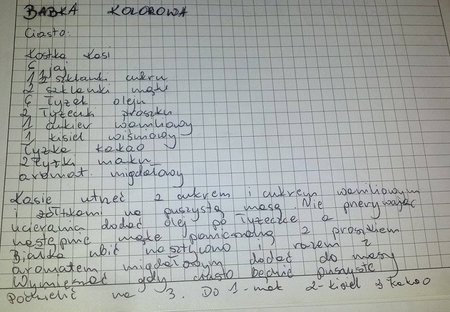 BABKA KOLOROWA
Ciasto:
Kostka Kasi
6 jaj
1 1/2 szklanki cukru
2 szklanki mąki
6 łyżek oleju
2 łyżeczki proszku
1 cukier waniliowy
1 kisiel wiśniowy
łyżka kakao
2 łyżki maku
aromat migdałowy
Kasię utrzeć z cukrem i cukrem waniliowym
i żółtkami na puszystą masę. Nie przerywając
ucierania dodać olej po łyżeczce a
następnie mąkę wymieszaną z proszkiem
Białka ubić na sztywno i razem z
aromatem migdałowym dodać do masy
Wymieszać gdy ciasto będzie puszyste
Podzielić na 3. Do 1-mak 2-kisiel 3 kakao